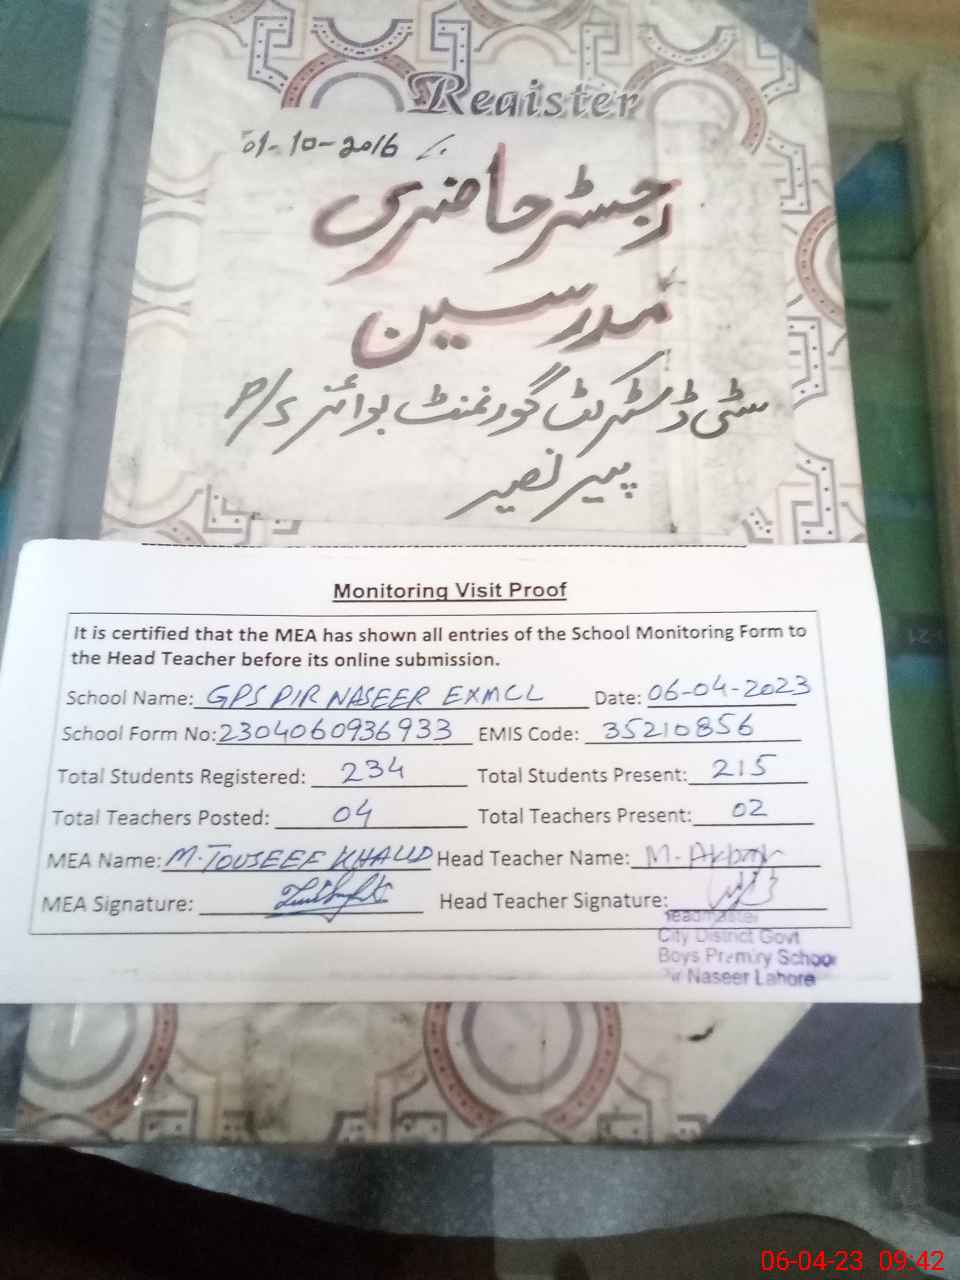 Register
01-10-2016
رجسٹر حاضری
مدرسین
سٹی ڈسٹرکٹ گورنمنٹ بوائز P/S
پیر نصیر
Monitoring Visit Proof
It is certified that the MEA has shown all entries of the School Monitoring Form to
the Head Teacher before its online submission.
School Name: GPS PIR NASEER EXMCL Date: 06-04-2023
School Form No: 2304060936933 EMIS Code: 35210856
Total Students Registered: 234 Total Students Present: 215
Total Teachers Posted: 04 Total Teachers Present: 02
MEA Name: M. TOUSEEF KHALID Head Teacher Name: M. Akbar
MEA Signature: Head Teacher Signature:
Headmaster
City District Govt
Boys Premiry School
Pir Naseer Lahore
06-04-23 09:42